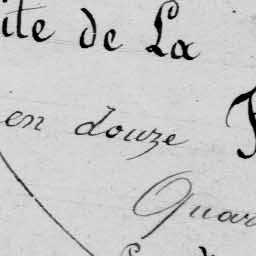 ite de La
en douze
Quar